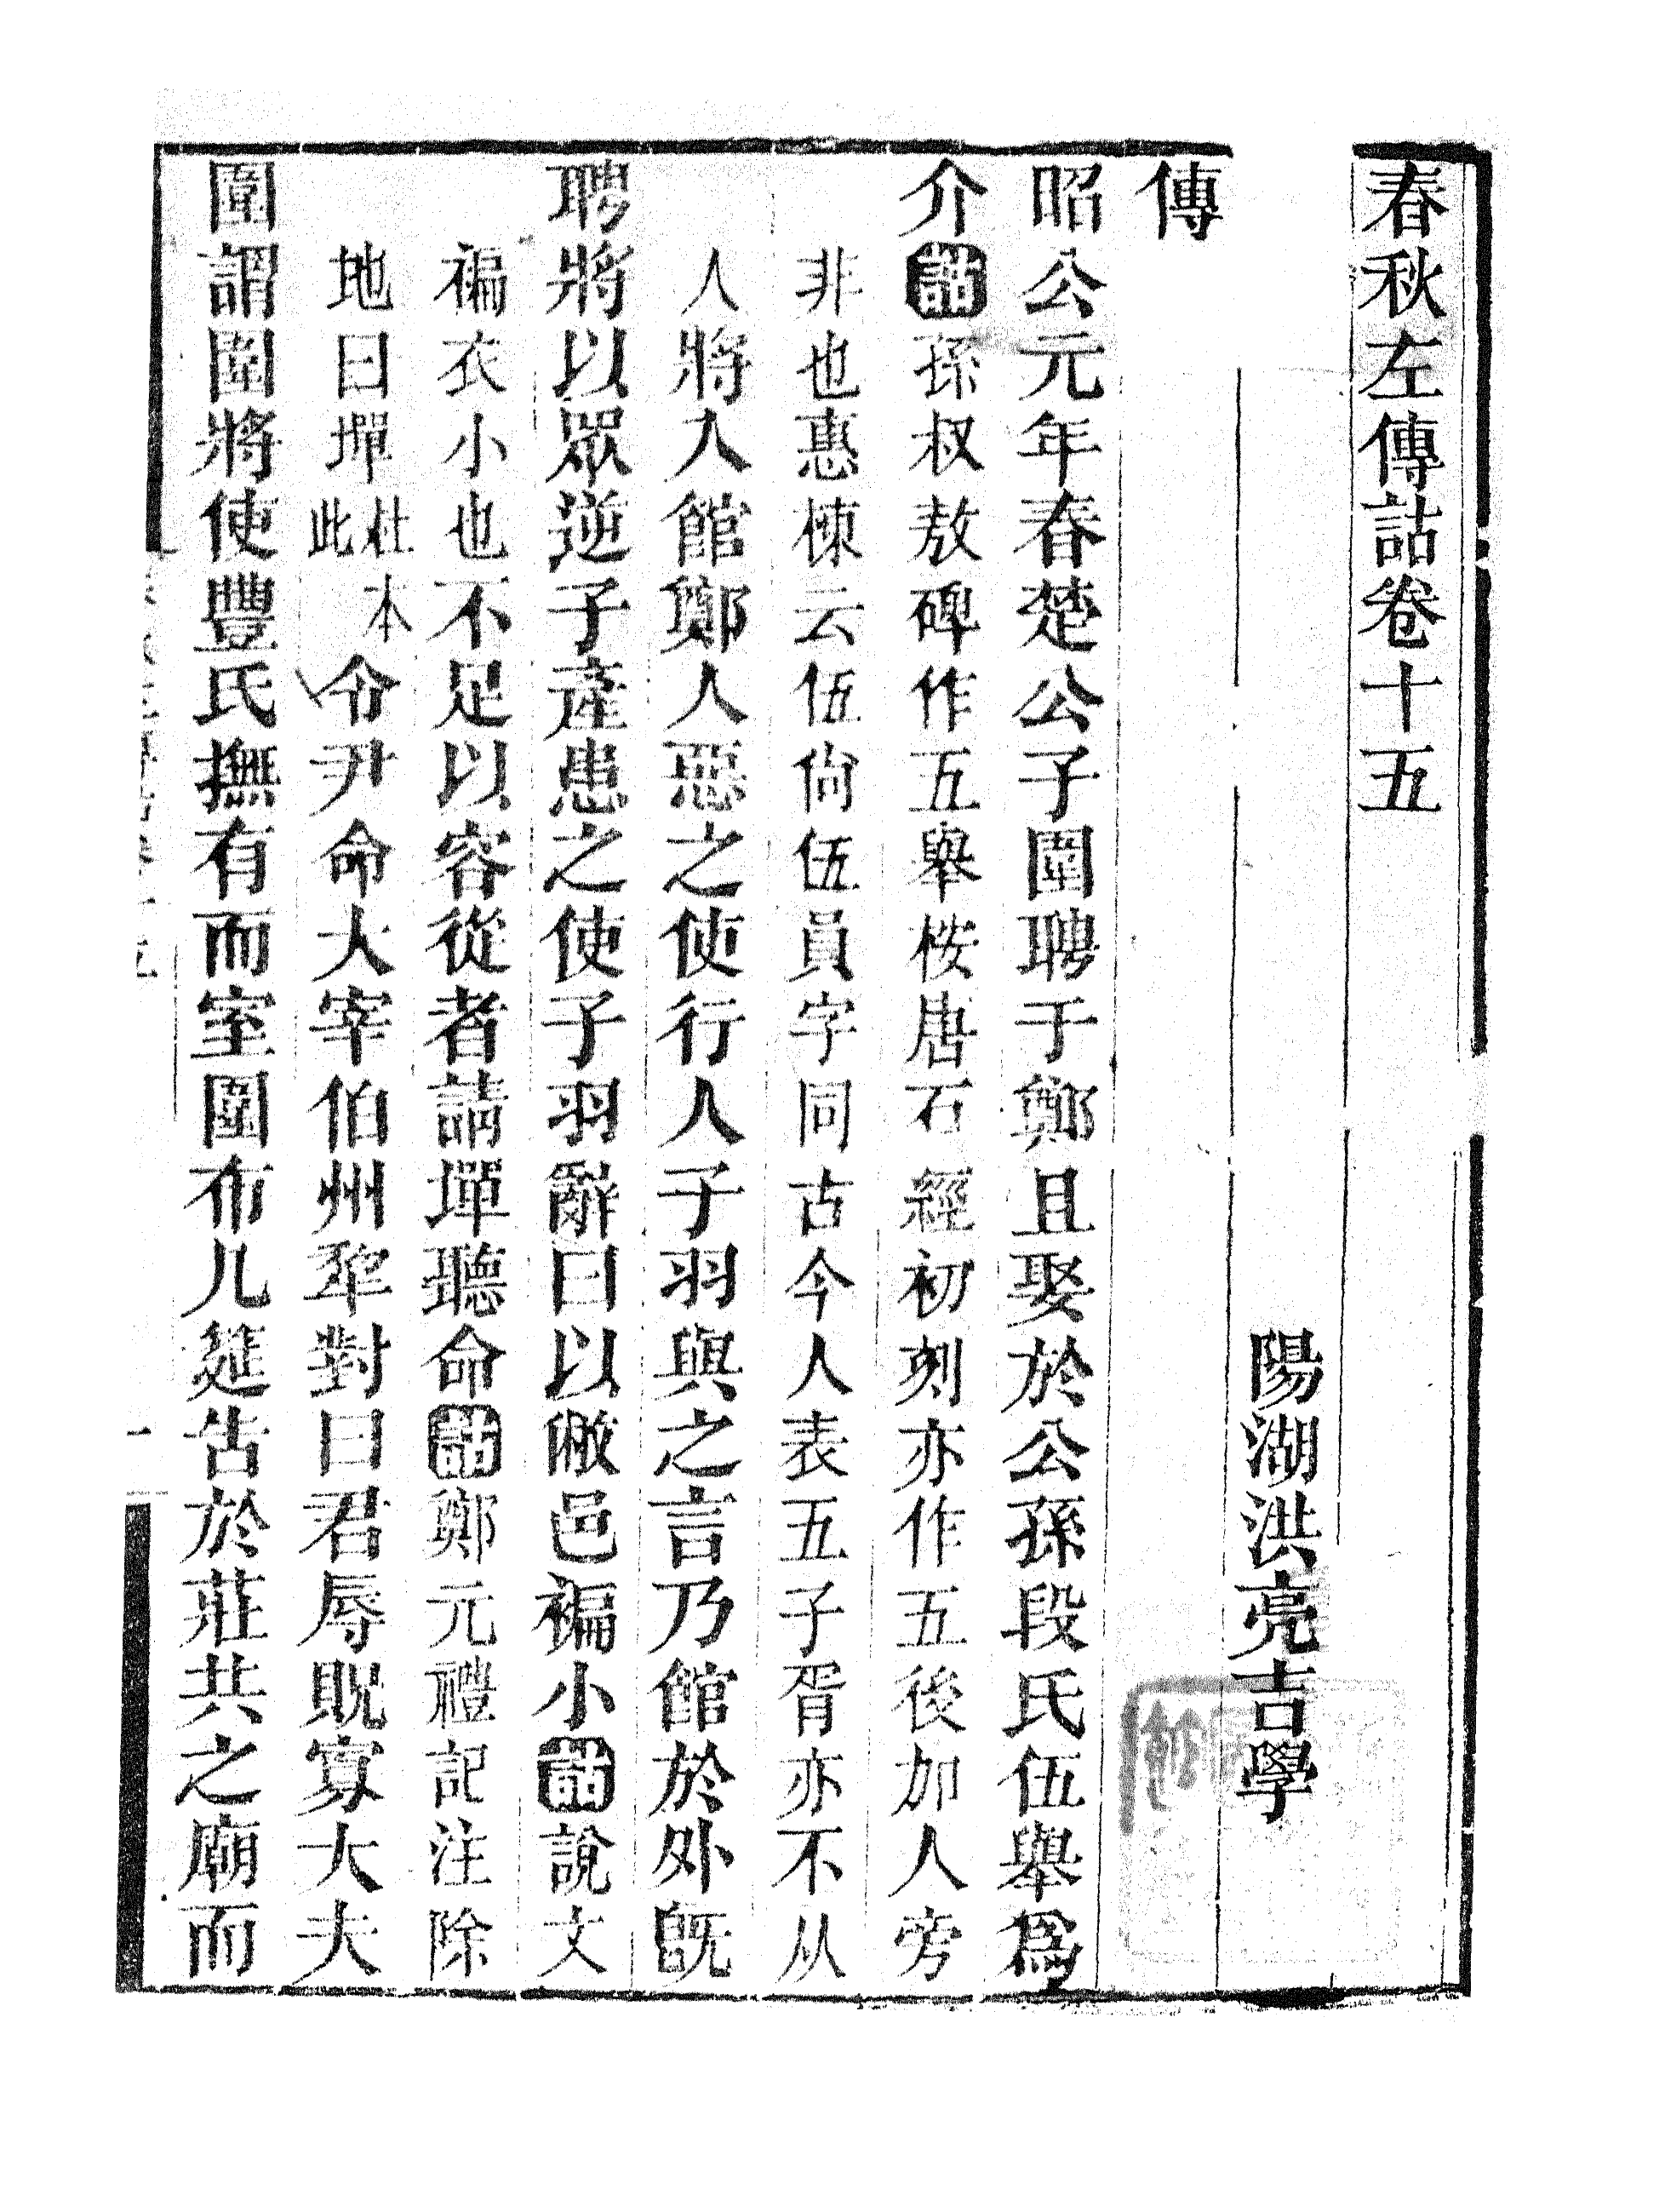 春秋左傳詁卷十五
陽湖洪亮吉學
傳
昭公元年春楚公子圍聘于鄭且娶於公孫段氏伍舉爲
介詁孫叔敖碑作五舉桉唐石經初刻亦作五後加人旁
非也惠棟云伍尙伍員字同古今人表五子胥亦不从
人將入館鄭人惡之使行人子羽與之言乃館於外旣
聘將以眾逆子產患之使子羽辭曰以敝邑褊小詁說文
褊衣小也不足以容從者請墠聽命詁鄭元禮記注除
地曰墠杜本此令尹命大宰伯州犂對曰君辱貺寡大夫
圍謂圍將使豐氏撫有而室圍布几筵告於莊共之廟而